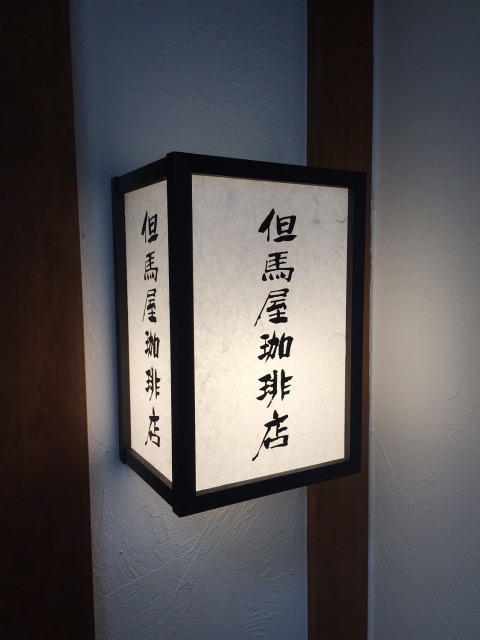 但馬屋珈琲店
但馬屋珈琲店